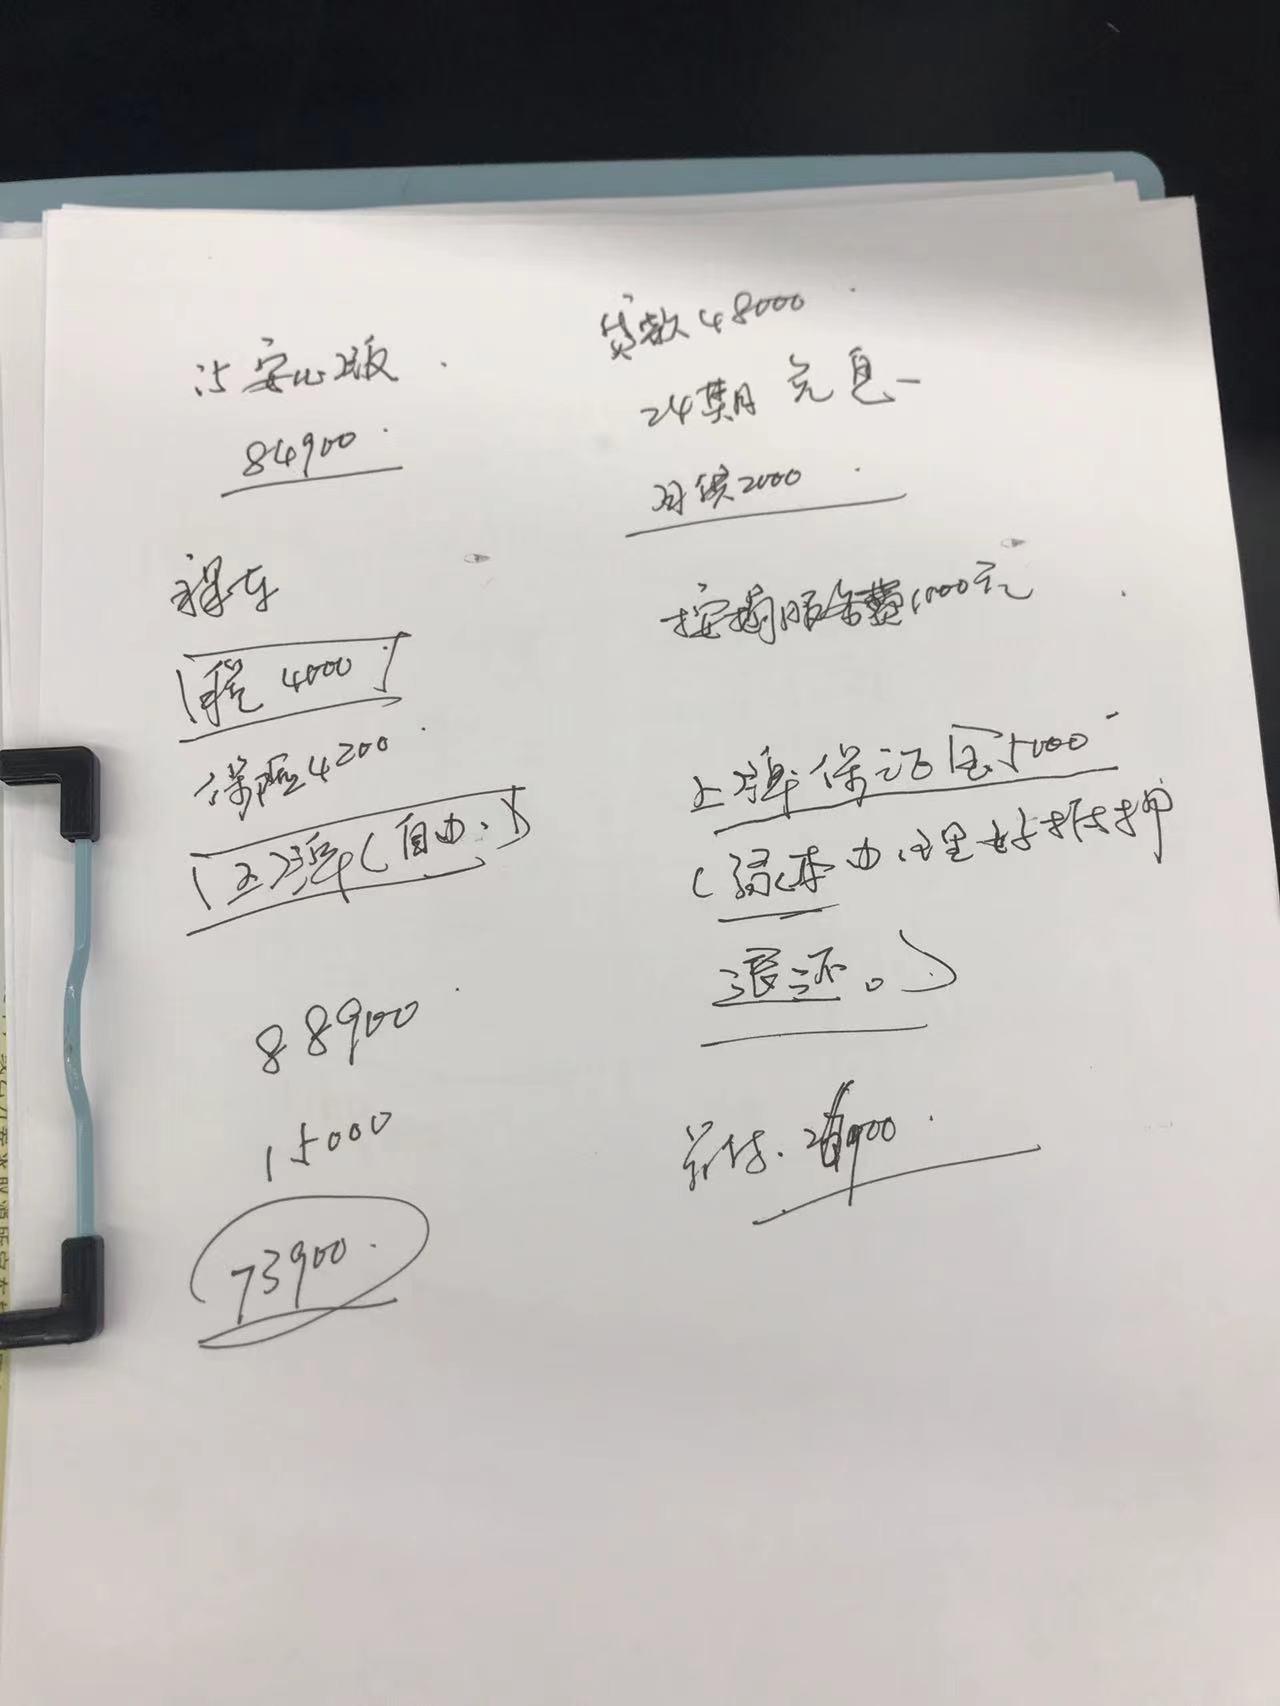 i5 安心版
84900
裸车
税 4000
保险4200
上牌(自办.)
88900
15000
73900
贷款48000
24期 免息
月供2000
按揭服务费1000元
上牌保证金5000
(绿本办理好抵押
退还。)
首付. 900